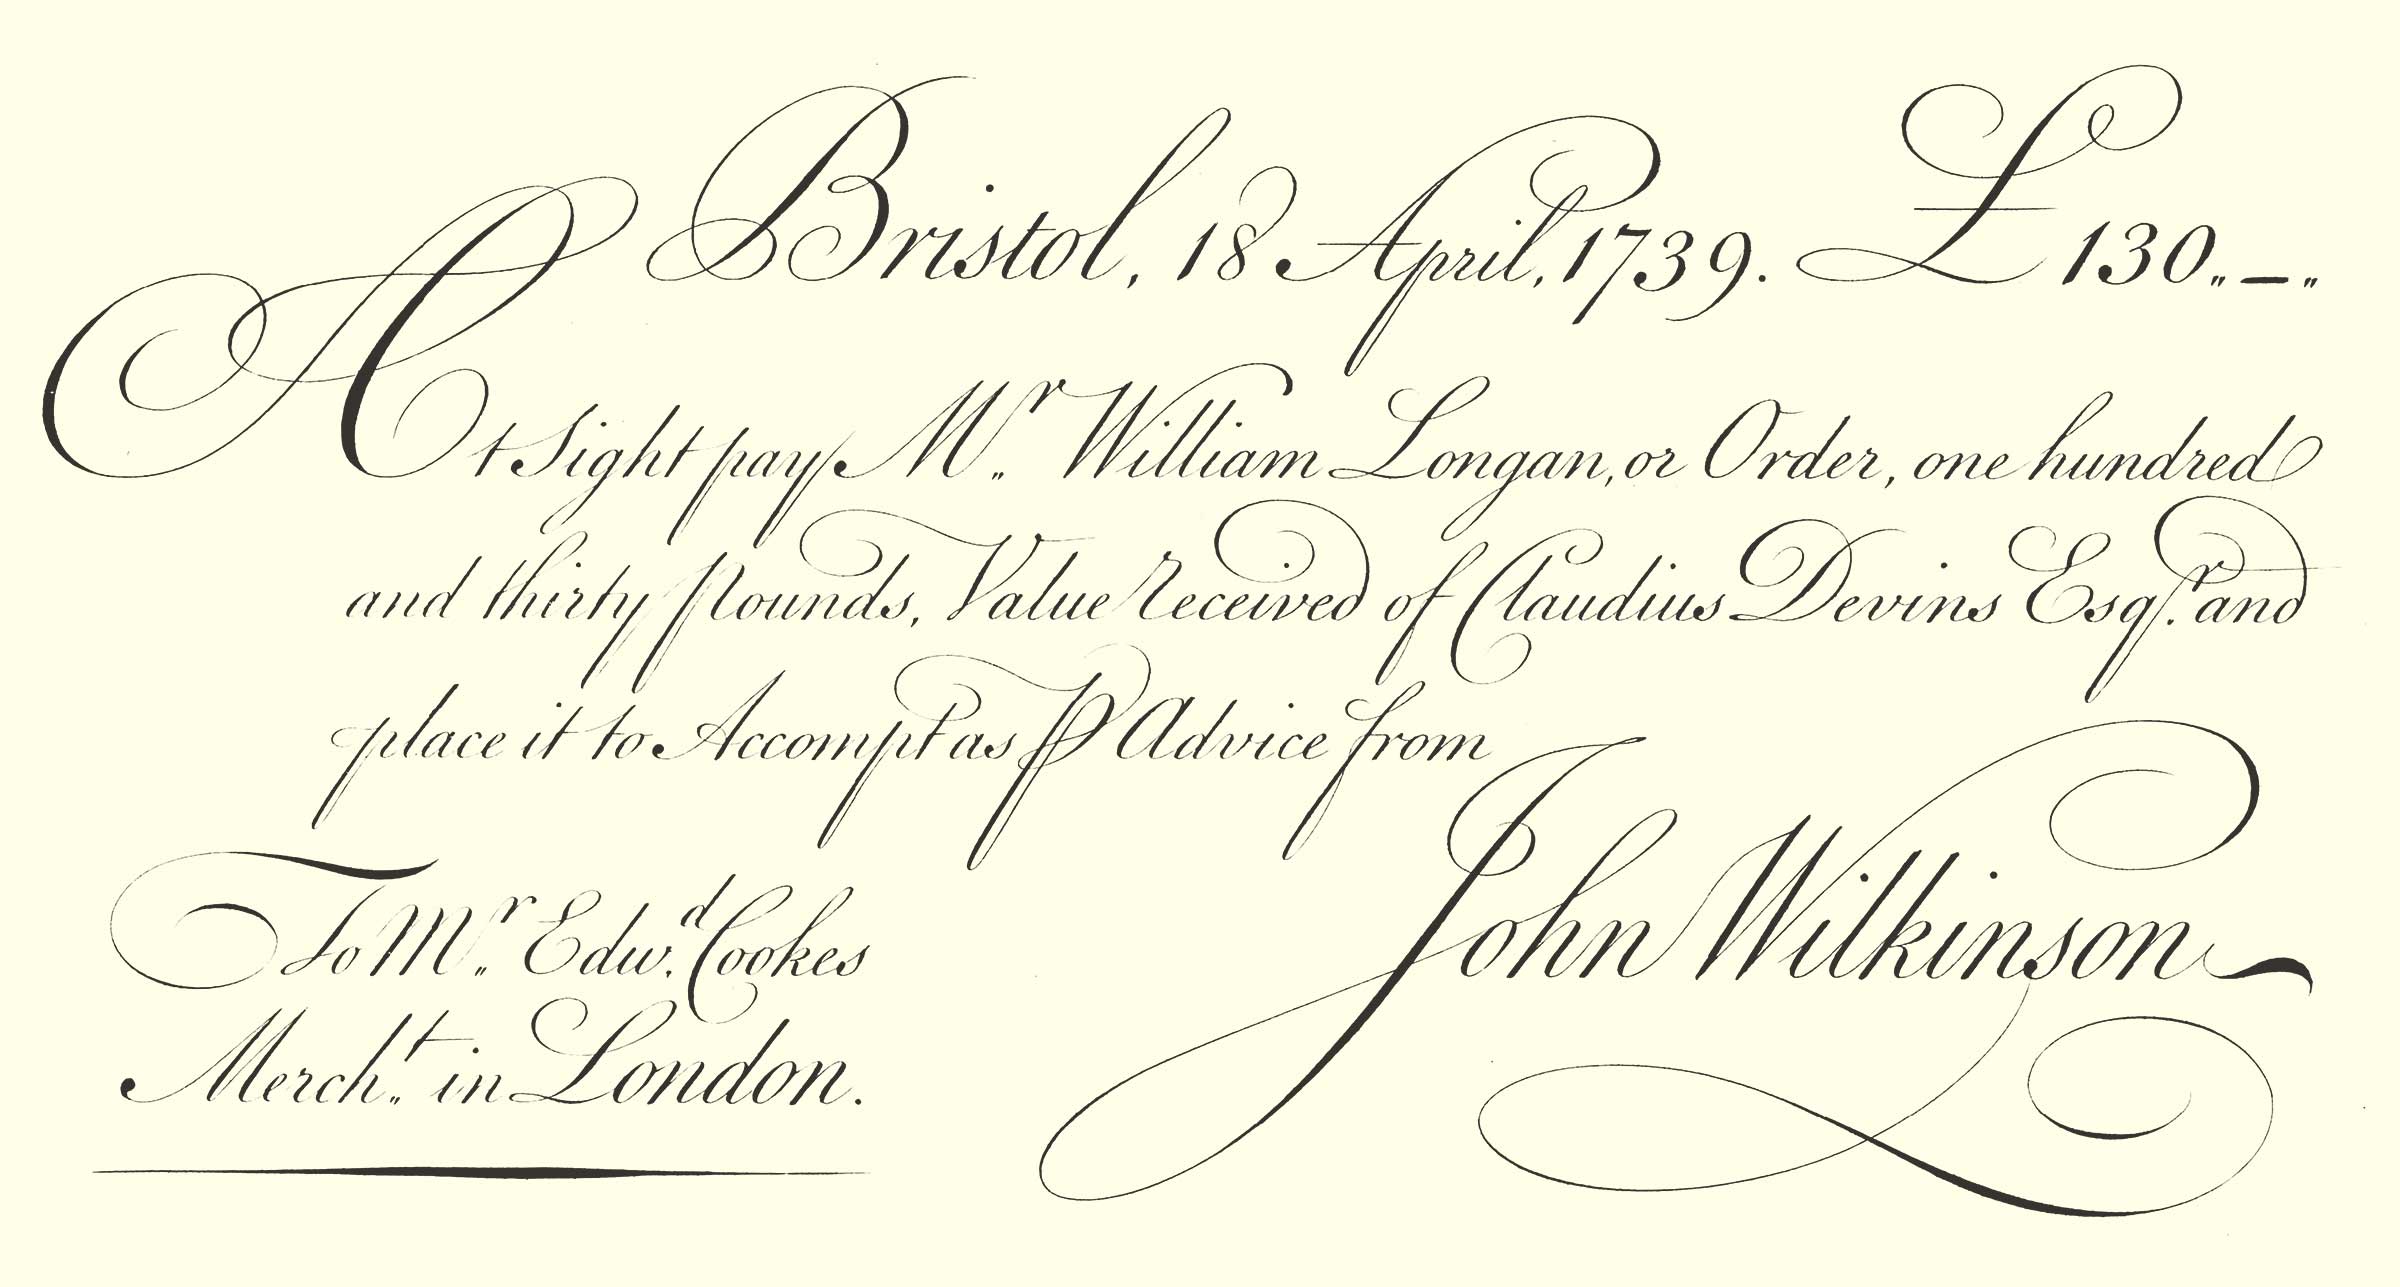 Bristol, 18 April, 1739. £ 130„—„
At Sight pay Mr„ William Longan, or Order, one hundred
and thirty Pounds, Value received of Claudius Devins Esqr. and
place it to Accompt as ⅌ Advice from
John Wilkinson
To Mr„ Edwd. Cookes
Mercht„ in London.